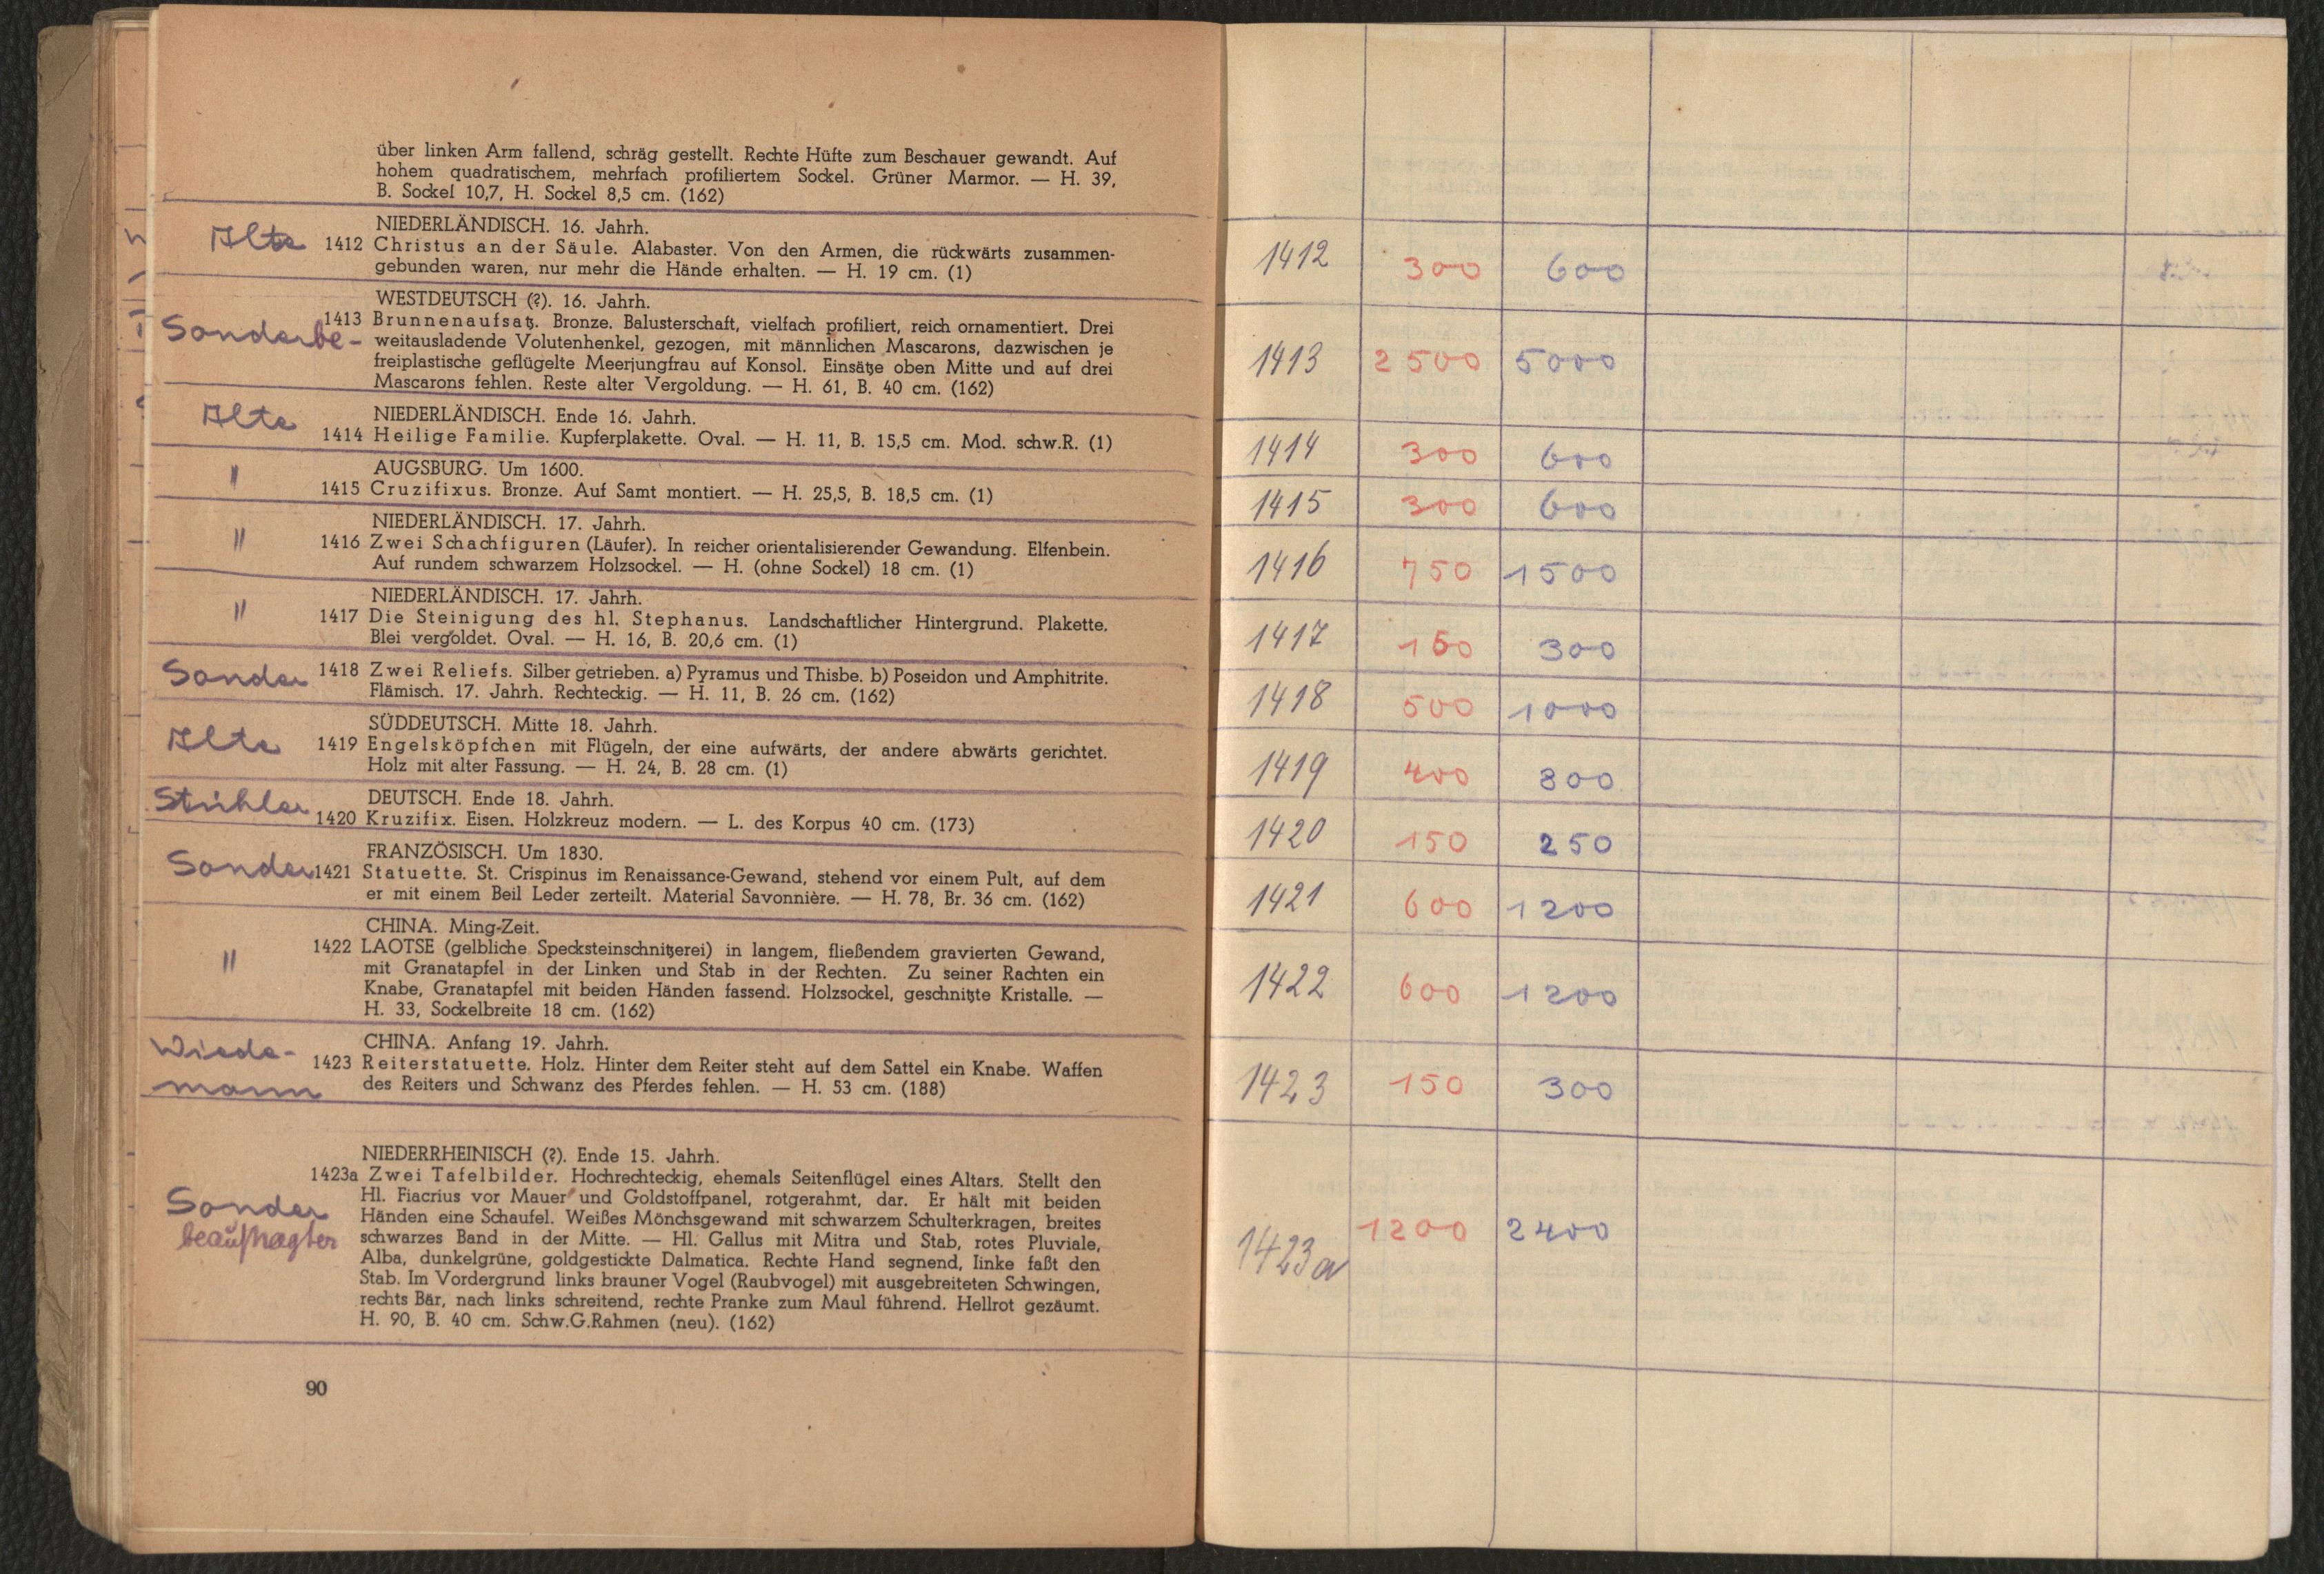 über linken Arm fallend, schräg gestellt. Rechte Hüfte zum Beschauer gewandt. Auf
hohem quadratischem, mehrfach profiliertem Sockel. Grüner Marmor. — H. 39,
B. Sockel 10,7, H. Sockel 8,5 cm. (162)
NIEDERLÄNDISCH. 16. Jahrh.
1412 Christus an der Säule. Alabaster. Von den Armen, die rückwärts zusammen-
gebunden waren, nur mehr die Hände erhalten. — H. 19 cm. (1)
WESTDEUTSCH (?). 16. Jahrh.
Sonderbe-
1413 Brunnenaufsatz. Bronze. Balusterschaft, vielfach profiliert, reich ornamentiert. Drei
weitausladende Volutenhenkel, gezogen, mit männlichen Mascarons, dazwischen je
freiplastische geflügelte Meerjungfrau auf Konsol. Einsätze oben Mitte und auf drei
Mascarons fehlen. Reste alter Vergoldung. — H. 61, B. 40 cm. (162)
NIEDERLÄNDISCH. Ende 16. Jahrh.
1414 Heilige Familie. Kupferplakette. Oval. — H. 11, B. 15,5 cm. Mod. schw.R. (1)
AUGSBURG. Um 1600.
" 1415 Cruzifixus. Bronze. Auf Samt montiert. — H. 25,5, B. 18,5 cm. (1)
NIEDERLÄNDISCH. 17. Jahrh.
" 1416 Zwei Schachfiguren (Läufer). In reicher orientalisierender Gewandung. Elfenbein.
Auf rundem schwarzem Holzsockel. — H. (ohne Sockel) 18 cm. (1)
NIEDERLÄNDISCH. 17. Jahrh.
" 1417 Die Steinigung des hl. Stephanus. Landschaftlicher Hintergrund. Plakette.
Blei vergoldet. Oval. — H. 16, B. 20,6 cm. (1)
Sonder 1418 Zwei Reliefs. Silber getrieben. a) Pyramus und Thisbe. b) Poseidon und Amphitrite.
Flämisch. 17. Jahrh. Rechteckig. — H. 11, B. 26 cm. (162)
SÜDDEUTSCH. Mitte 18. Jahrh.
1419 Engelsköpfchen mit Flügeln, der eine aufwärts, der andere abwärts gerichtet.
Holz mit alter Fassung. — H. 24, B. 28 cm. (1)
DEUTSCH. Ende 18. Jahrh.
Stühler 1420 Kruzifix. Eisen. Holzkreuz modern. — L. des Korpus 40 cm. (173)
FRANZÖSISCH. Um 1830.
Sonder 1421 Statuette. St. Crispinus im Renaissance-Gewand, stehend vor einem Pult, auf dem
er mit einem Beil Leder zerteilt. Material Savonnière. — H. 78, Br. 36 cm. (162)
CHINA. Ming-Zeit.
" 1422 LAOTSE (gelbliche Specksteinschnitzerei) in langem, fließendem gravierten Gewand,
mit Granatapfel in der Linken und Stab in der Rechten. Zu seiner Rachten ein
Knabe, Granatapfel mit beiden Händen fassend. Holzsockel, geschnitzte Kristalle. —
H. 33, Sockelbreite 18 cm. (162)
CHINA. Anfang 19. Jahrh.
Wiede-
1423 Reiterstatuette. Holz. Hinter dem Reiter steht auf dem Sattel ein Knabe. Waffen
mann
des Reiters und Schwanz des Pferdes fehlen. — H. 53 cm. (188)
NIEDERRHEINISCH (?). Ende 15. Jahrh.
1423a Zwei Tafelbilder. Hochrechteckig, ehemals Seitenflügel eines Altars. Stellt den
Hl. Fiacrius vor Mauer und Goldstoffpanel, rotgerahmt, dar. Er hält mit beiden
Sonder
Händen eine Schaufel. Weißes Mönchsgewand mit schwarzem Schulterkragen, breites
beauftragter
schwarzes Band in der Mitte. — Hl. Gallus mit Mitra und Stab, rotes Pluviale,
Alba, dunkelgrüne, goldgestickte Dalmatica. Rechte Hand segnend, linke faßt den
Stab. Im Vordergrund links brauner Vogel (Raubvogel) mit ausgebreiteten Schwingen,
rechts Bär, nach links schreitend, rechte Pranke zum Maul führend. Hellrot gezäumt.
H. 90, B. 40 cm. Schw.G.Rahmen (neu). (162)
90
1412 300 600
1413 2500 5000
1414 300 600
1415 300 600
1416 750 1500
1417 150 300
1418 500 1000
1419 400 800
1420 150 250
1421 600 1200
1422 600 1200
1423 150 300
1423a 1200 2400